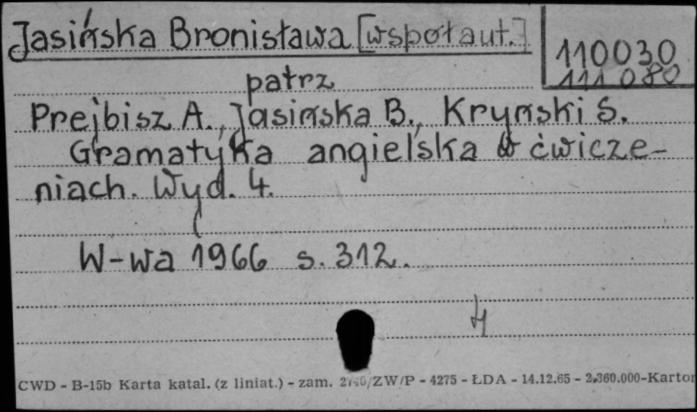 Jasińska Bronisława [współaut.]
110030
111080
patrz
Prejbisz A., Jasińska B., Kryński S.
Gramatyka angielska w ćwicze-
niach. Wyd. 4.
W-wa 1966 s. 312.
4
CWD - B-15b Karta katal. (z liniat.) - zam. /ZW/P - 4275 - ŁDA - 14.12.65 - 2.360.000-Karton